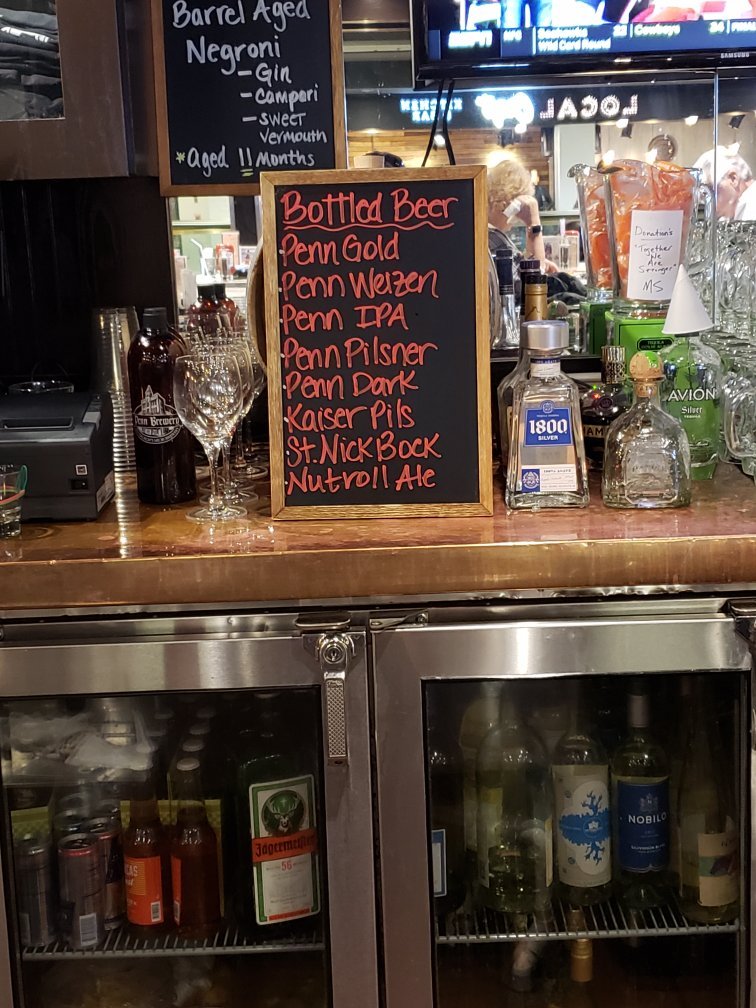 Barrel Aged
Negroni
- Gin
- Campari
- Sweet
Vermouth
*Aged 11 Months
Bottled Beer
Penn Gold
Penn Weizen
Penn IPA
Penn Pilsner
Penn Dark
Kaiser Pils
St. Nick Bock
Nutroll Ale
ESPN
NFL
Seahawks 22
Wild Card Round
Cowboys 24
SAMSUNG
KITCHEN
BAR
LOCAL
Donation's
"Together
We
Are
Stronger"
MS
Penn Brewery
1800
SILVER
AVION
Silver
Jägermeister
56
NOBILO
SAUVIGNON BLANC